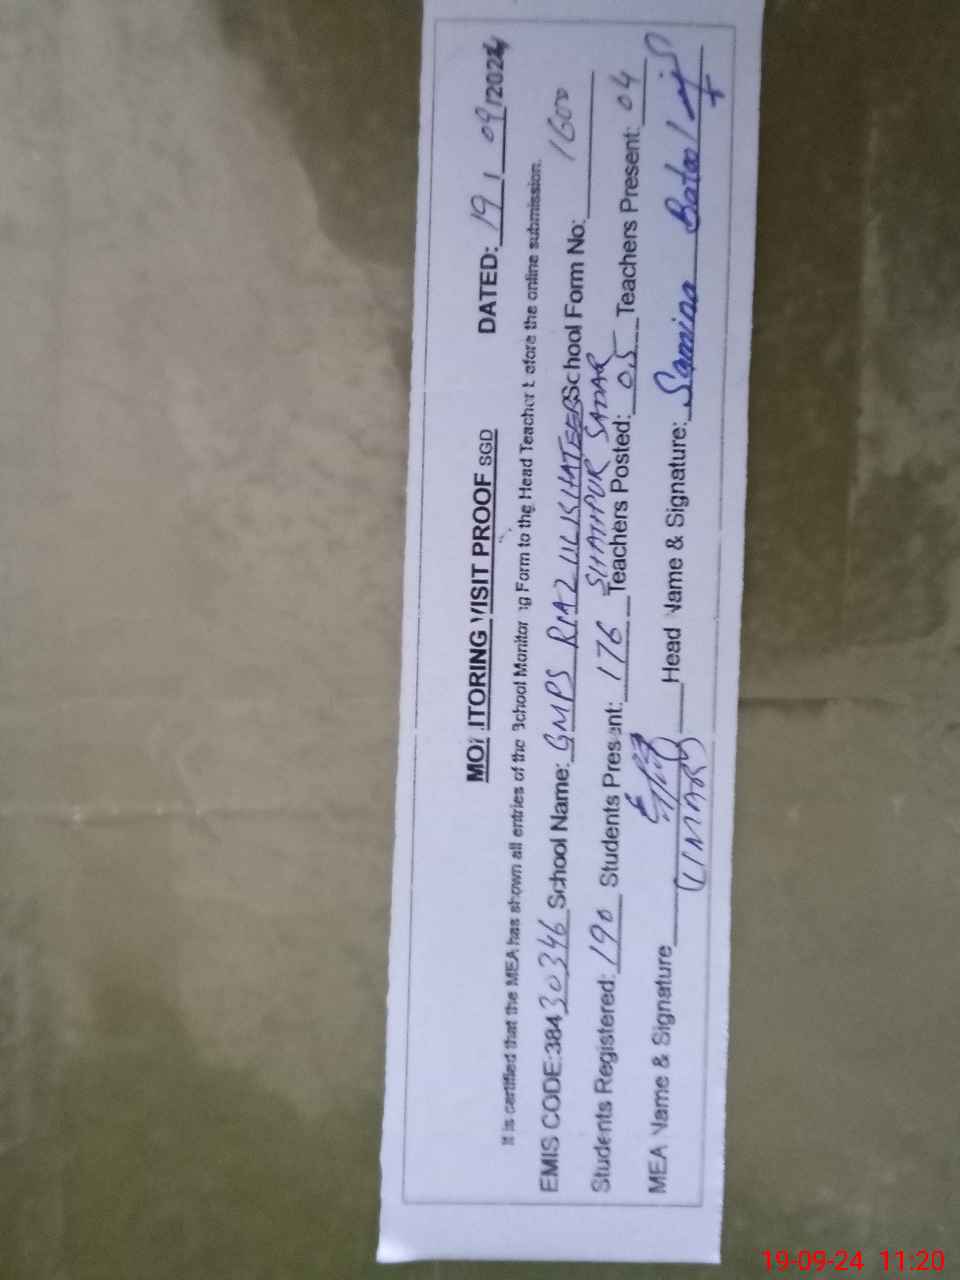 MONITORING VISIT PROOF SGD DATED: 19/09/2024
It is certified that the MEA has shown all entries of the School Monitoring Form to the Head Teacher before the online submission.
EMIS CODE:38430346 School Name: GMPS RIAZ UL School Form No: 1600
SHAHPUR SADAR
Students Registered: 190 Students Present: 176 Teachers Posted: 05 Teachers Present: 04
MEA Name & Signature UMAR Head Name & Signature: Samina Batool
19-09-24 11:20